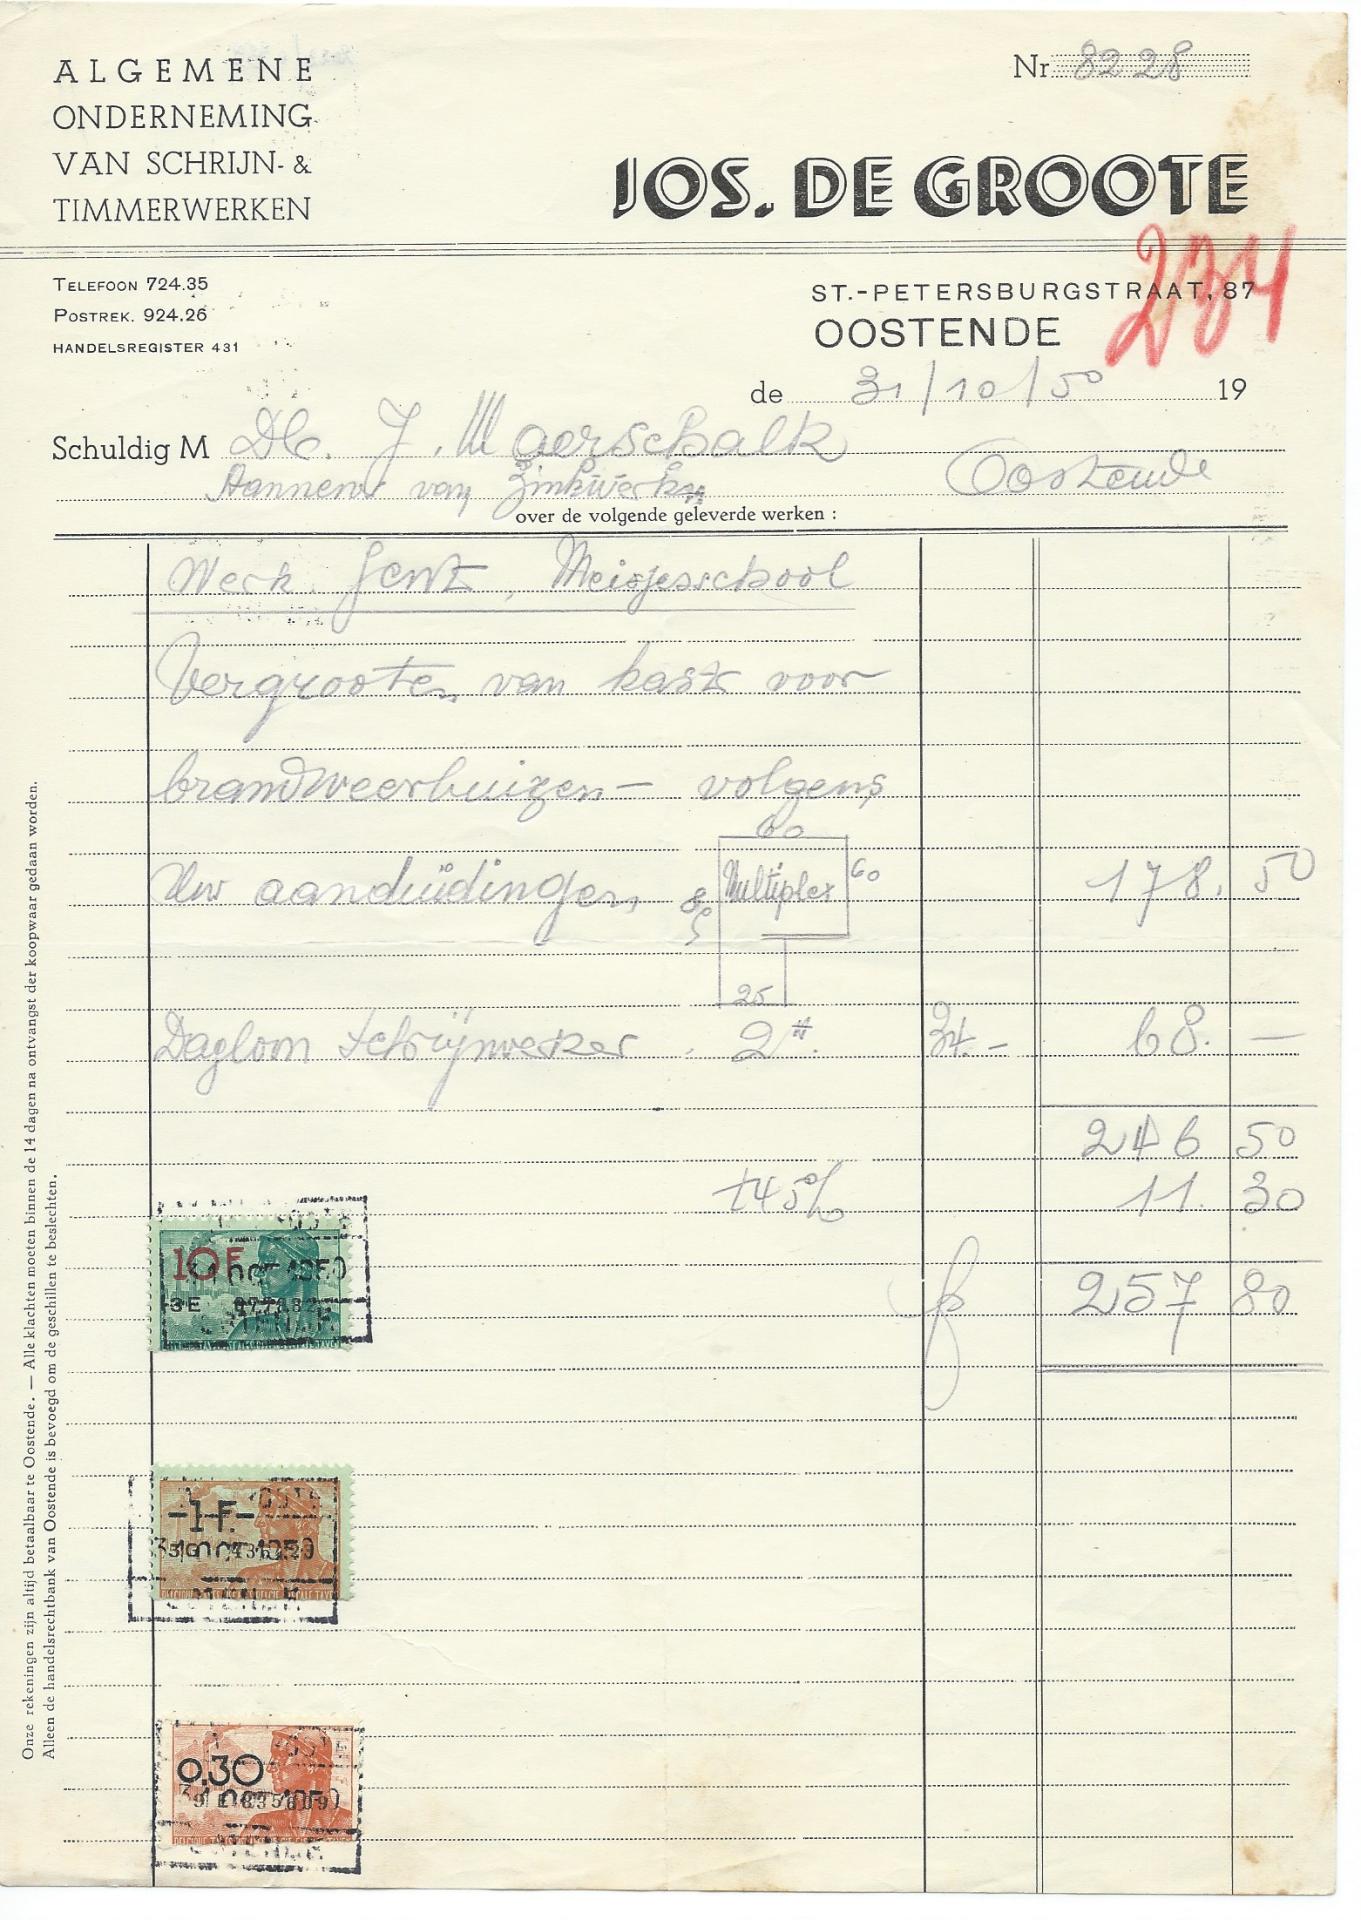 ALGEMENE
ONDERNEMING
VAN SCHRIJN- &
TIMMERWERKEN
Nr 8228
JOS. DE GROOTE
234
TELEFOON 724.35
POSTREK. 924.26
HANDELSREGISTER 431
ST.-PETERSBURGSTRAAT, 87
OOSTENDE
de 31/10/50 19
Schuldig M Dh. J. Maerschalk
Aannemr van Zinkwerken Oostende
over de volgende geleverde werken :
Werk Gent, Meisjesschool
Vergrooten van kast voor
brandweerbuizen – volgens
60
Uw aanduidingen 85 Multiplex 60 178. 50
25
Dagloon Schrijnwerker . 2 u. 34.– 68. —
246 50
+4 50/0 11. 30
fr 257 80
10 F
31 OCT 1950
-1 F-
31 OCT 1950
BELGIQUE
0,30
31 OCT 1950
Onze rekeningen zijn altijd betaalbaar te Oostende. — Alle klachten moeten binnen de 14 dagen na ontvangst der koopwaar gedaan worden.
Alleen de handelsrechtbank van Oostende is bevoegd om de geschillen te beslechten.